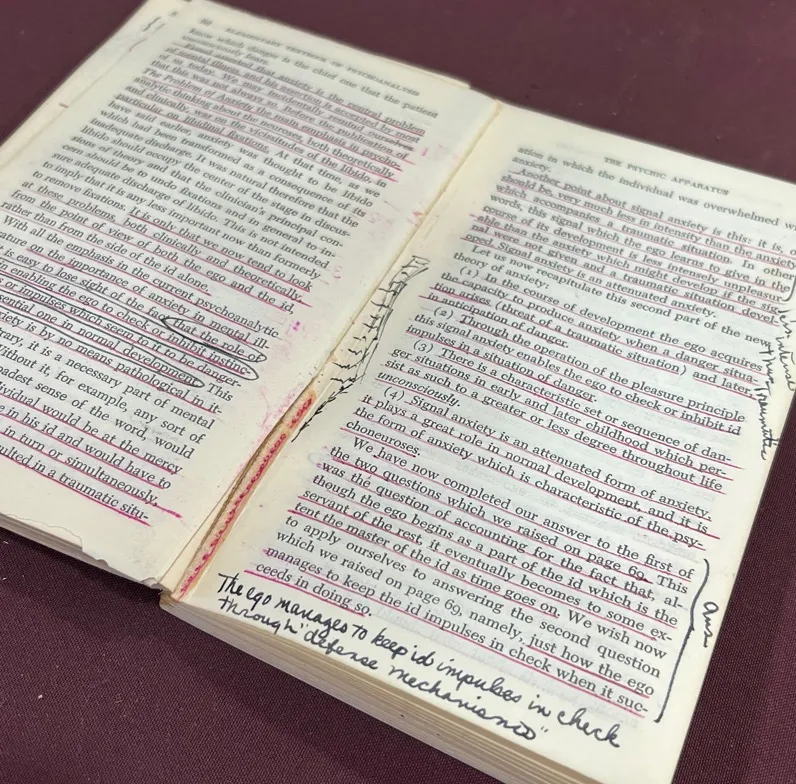 80 ELEMENTARY TEXTBOOK OF PSYCHOANALYSIS
know which danger is the chief one that the patient
unconsciously fears.
Freud asserted that anxiety is the central problem
of mental illness, and his assertion is accepted by most
of us today. We may incidentally remind ourselves
that this was not always so. Before the publication of
The Problem of Anxiety the main emphasis in psycho-
analytic thinking about the neuroses, both theoretically
and clinically, was on the vicissitudes of the libido, in
particular on libidinal fixations. At that time, as we
have said earlier, anxiety was thought to be libido
which had been transformed as a consequence of its
inadequate discharge. It was natural therefore that the
libido should occupy the center of the stage in discus-
sions of theory and that the clinician's principal con-
cern should be to undo fixations and in general to in-
sure adequate discharge of libido. This is not intended
to imply that it is any less important now than formerly
to remove fixations. It is only that we now tend to look
at these problems, both clinically and theoretically,
from the point of view of both the ego and the id,
rather than from the side of the id alone.
With all the emphasis in the current psychoanalytic
ature on the importance of anxiety in mental ill-
is easy to lose sight of the fact that the role of
in enabling the ego to check or inhibit instinc-
or impulses which seem to it to be danger-
sential one in normal development. This
xiety is by no means pathological in it-
trary, it is a necessary part of mental
Without it, for example, any sort of
oadest sense of the word, would
dividual would be at the mercy
e in his id and would have to
in turn or simultaneously,
ulted in a traumatic situ-
THE PSYCHIC APPARATUS
ation in which the individual was overwhelmed w
anxiety.
Another point about signal anxiety is this: it is,
should be, very much less in intensity than the anxiety
which accompanies a traumatic situation. In other
words, this signal which the ego learns to give in the
course of its development is less intensely unpleasur-
able than the anxiety which might develop if the sig-
nal were not given and a traumatic situation devel-
oped. Signal anxiety is an attenuated anxiety.
Let us now recapitulate this second part of the new
theory of anxiety:
(1) In the course of development the ego acquires
the capacity to produce anxiety when a danger situa-
tion arises (threat of a traumatic situation) and later,
in anticipation of danger.
(2) Through the operation of the pleasure principle
this signal anxiety enables the ego to check or inhibit id
impulses in a situation of danger.
(3) There is a characteristic set or sequence of dan-
ger situations in early and later childhood which per-
sist as such to a greater or less degree throughout life
unconsciously.
(4) Signal anxiety is an attenuated form of anxiety,
it plays a great role in normal development, and it is
the form of anxiety which is characteristic of the psy-
choneuroses.
We have now completed our answer to the first of
the two questions which we raised on page 69. This
was the question of accounting for the fact that, al-
though the ego begins as a part of the id which is the
servant of the rest, it eventually becomes to some ex-
tent the master of the id as time goes on. We wish now
to apply ourselves to answering the second question
which we raised on page 69, namely, just how the ego
manages to keep the id impulses in check when it suc-
ceeds in doing so.
less intense
than traumatic
ans
The ego manages to keep id impulses in check
through "defense mechanisms"